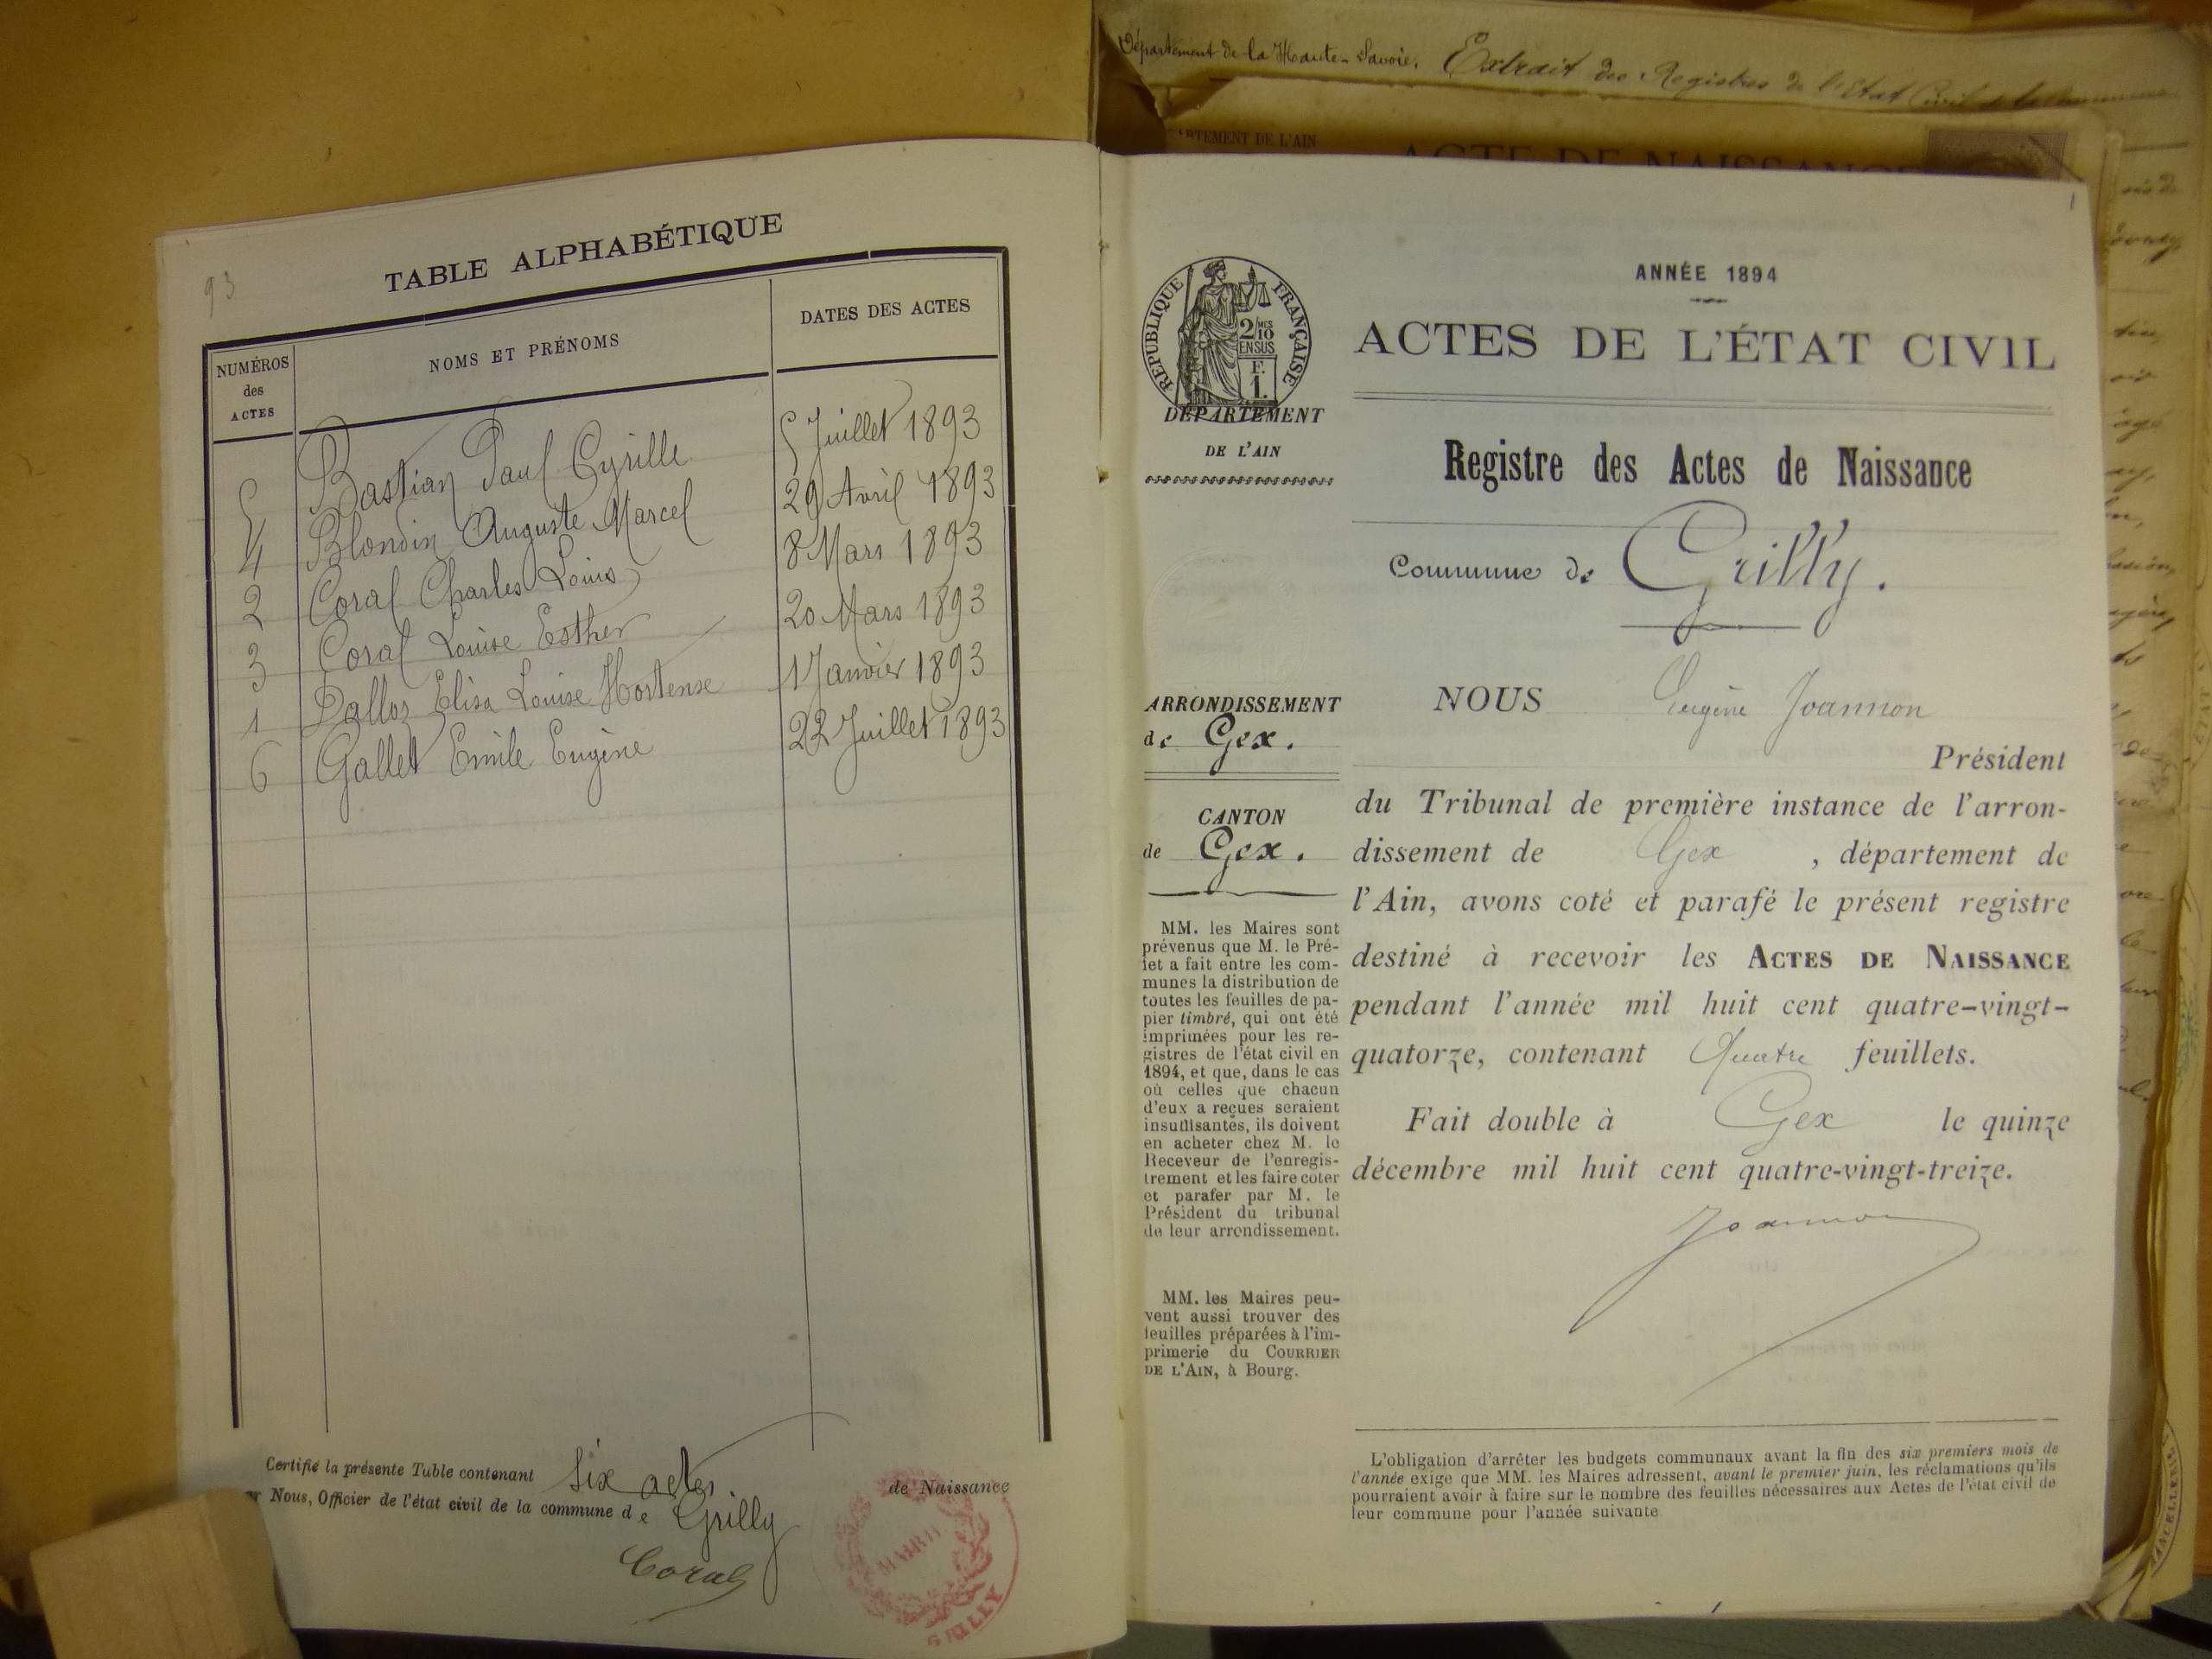 93
TABLE ALPHABÉTIQUE
NUMÉROS des ACTES NOMS ET PRÉNOMS DATES DES ACTES
5 Bastian Paul Cyrille 5 Juillet 1893
4 Blondin Auguste Marcel 29 Avril 1893
2 Coral Charles Louis 8 Mars 1893
3 Coral Louise Esther 20 Mars 1893
1 Dalloz Elisa Louise Hortense 1 Janvier 1893
6 Gallet Emile Eugène 22 Juillet 1893
Certifié la présente Table contenant six actes de Naissance
Nous, Officier de l'état civil de la commune de Grilly
Coral
MAIRIE
GRILLY
Département de la Haute-Savoie. Extrait des Registres de l'Etat Civil de la
ARTEMENT DE L'AIN
ACTE DE NAISSANCE
1
RÉPUBLIQUE FRANÇAISE
2/10 MES
EN SUS
F.
1.
DÉPARTEMENT
DE L'AIN
ARRONDISSEMENT
de Gex.
CANTON
de Gex.
MM. les Maires sont
prévenus que M. le Pré-
fet a fait entre les com-
munes la distribution de
toutes les feuilles de pa-
pier timbré, qui ont été
imprimées pour les re-
gistres de l'état civil en
1894, et que, dans le cas
où celles que chacun
d'eux a reçues seraient
insuffisantes, ils doivent
en acheter chez M. le
Receveur de l'enregis-
trement et les faire coter
et parafer par M. le
Président du tribunal
de leur arrondissement.
MM. les Maires peu-
vent aussi trouver des
feuilles préparées à l'im-
primerie du COURRIER
DE L'AIN, à Bourg.
ANNÉE 1894
ACTES DE L'ÉTAT CIVIL
Registre des Actes de Naissance
Commune de Grilly.
NOUS Eugène Joannon
Président
du Tribunal de première instance de l'arron-
dissement de Gex , département de
l'Ain, avons coté et parafé le présent registre
destiné à recevoir les ACTES DE NAISSANCE
pendant l'année mil huit cent quatre-vingt-
quatorze, contenant Quatre feuillets.
Fait double à Gex le quinze
décembre mil huit cent quatre-vingt-treize.
Joannon
L'obligation d'arrêter les budgets communaux avant la fin des six premiers mois de
l'année exige que MM. les Maires adressent, avant le premier juin, les réclamations qu'ils
pourraient avoir à faire sur le nombre des feuilles nécessaires aux Actes de l'état civil de
leur commune pour l'année suivante